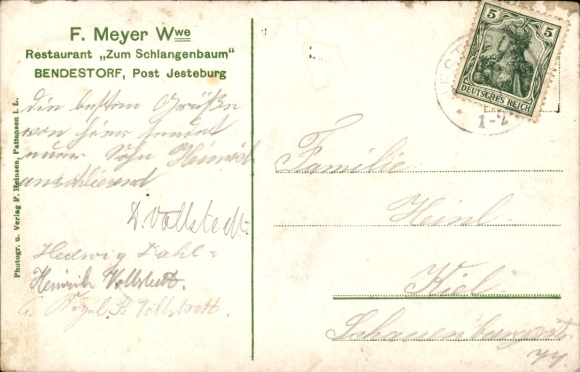 F. Meyer Wwe
Restaurant „Zum Schlangenbaum"
BENDESTORF, Post Jesteburg
die besten Grüße
von hier sendet
euer Sohn Heinrich
anschließend
D. Vollstedt
Hedwig Dahl
Heinrich Vollstedt.
Vollstedt
Photogr. u. Verlag F. Heinsen, Pattensen i. L.
5 5
DEUTSCHES REICH
1-2
Familie
Heinl.
Kiel
Schauenburgerstr
44